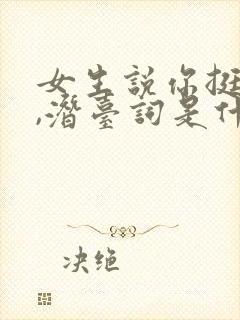 女生說你挺
，潛臺詞是什
决绝